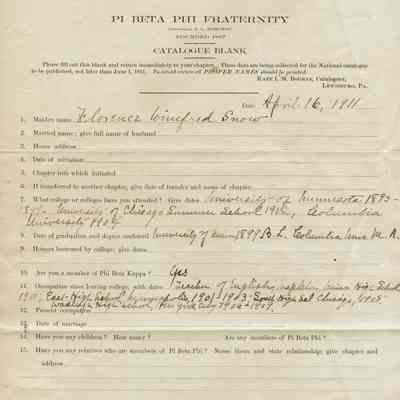 PI BETA PHI FRATERNITY
FOUNDED 1867
CATALOGUE BLANK
Please fill out this blank and return immediately to your chapter. These data are being collected for the National catalogue
to be published, not later than June 1, 1911. To avoid errors all PROPER NAMES should be printed.
Catalogues,
Lewisburg, Pa.
Date April 16, 1911
1. Maiden name Florence Winifred Snow
2. Married name; give full name of husband
3. Home address
4. Date of initiation
5. Chapter into which initiated
6. If transferred to another chapter, give date of transfer and name of chapter
7. What college or colleges have you attended? Give dates University of Minnesota 1895-
University of Chicago Summer School Columbia
University
8. Date of graduation and degree conferred University of 1899 B. L. Columbia M. A.
9. Honors bestowed by college; give dates
10. Are you a member of Phi Beta Kappa? Yes
11. Occupation since leaving college, with dates Teacher of English, High School
East High School 1901-1903 South High
High School,
12. Present occupation
13. Date of marriage
14. Have you any children? How many? Are any members of Pi Beta Phi?
15. Have you any relatives who are members of Pi Beta Phi? Name them and state relationship; give chapter and
address